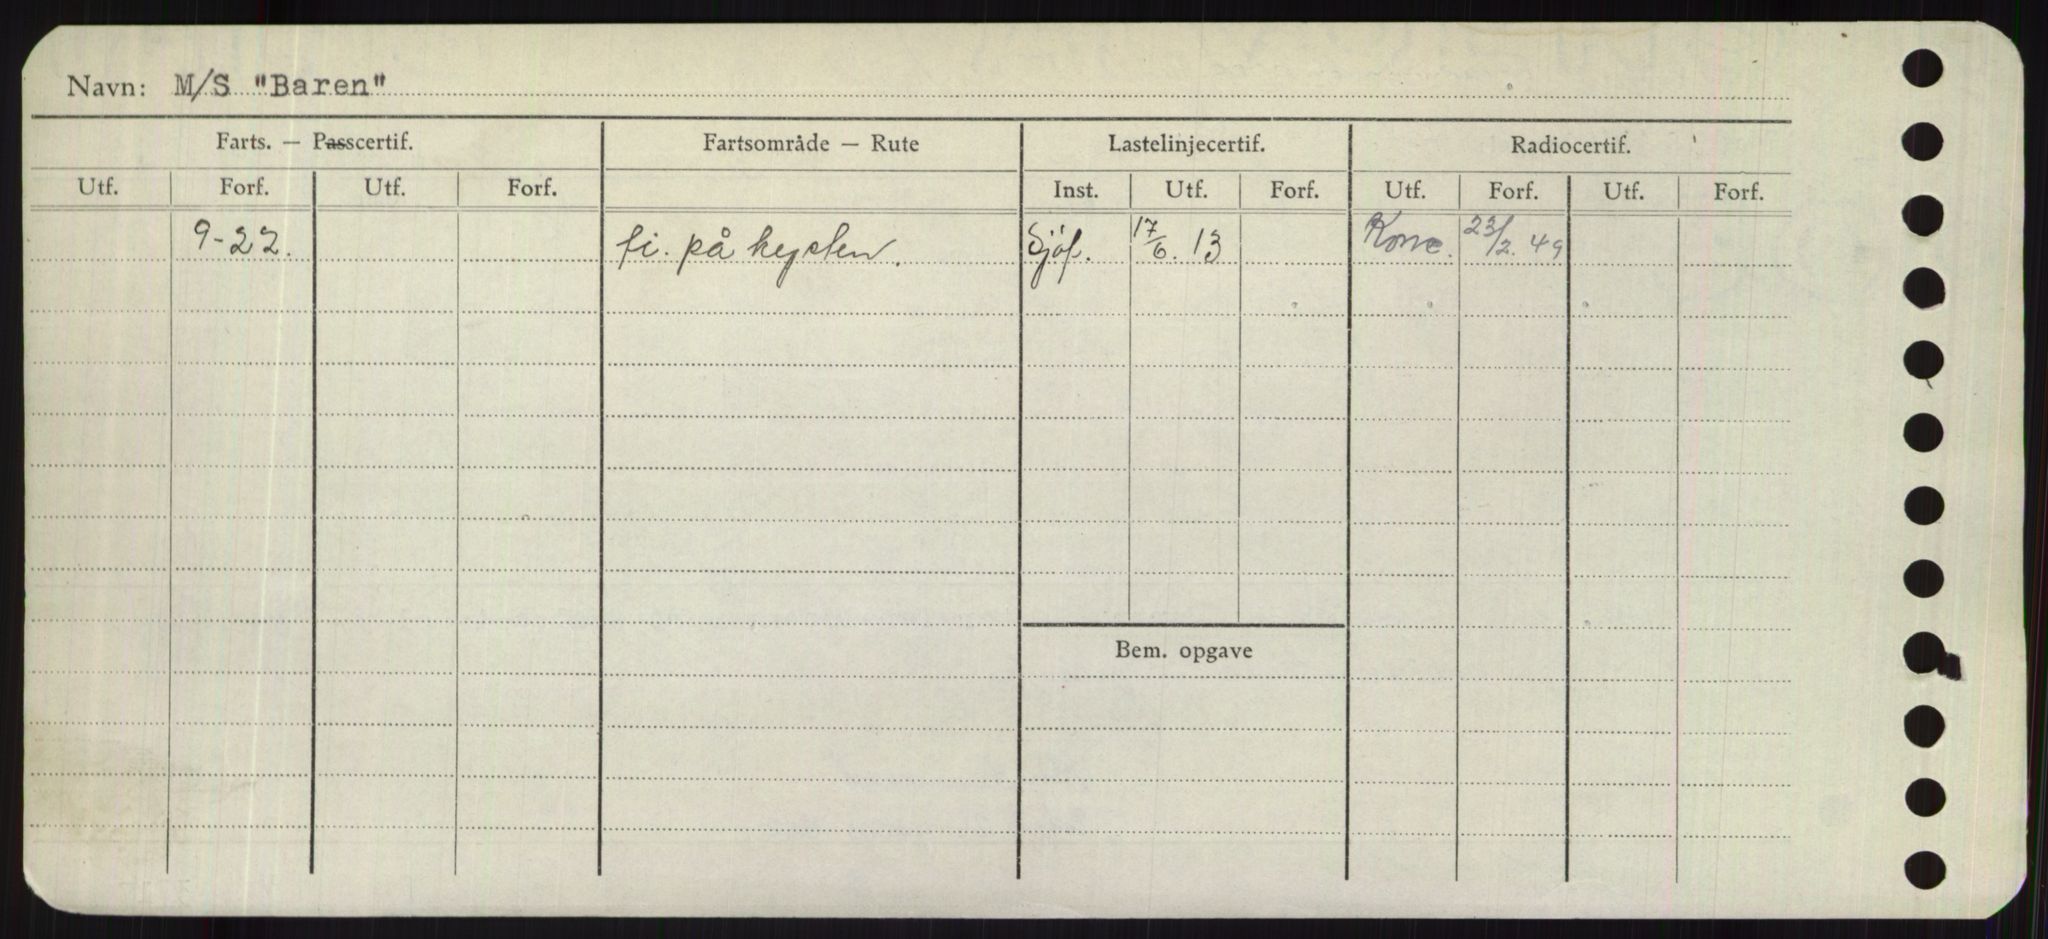 Navn: M/S "Baren"
Farts. — Passcertif. Fartsområde — Rute Lastelinjecertif. Radiocertif.
Utf. Forf. Utf. Forf. Inst. Utf. Forf. Utf. Forf. Utf. Forf.
9-22. fi. på kysten. Sjöf. 17/6. 13 23/2. 49
Bem. opgave